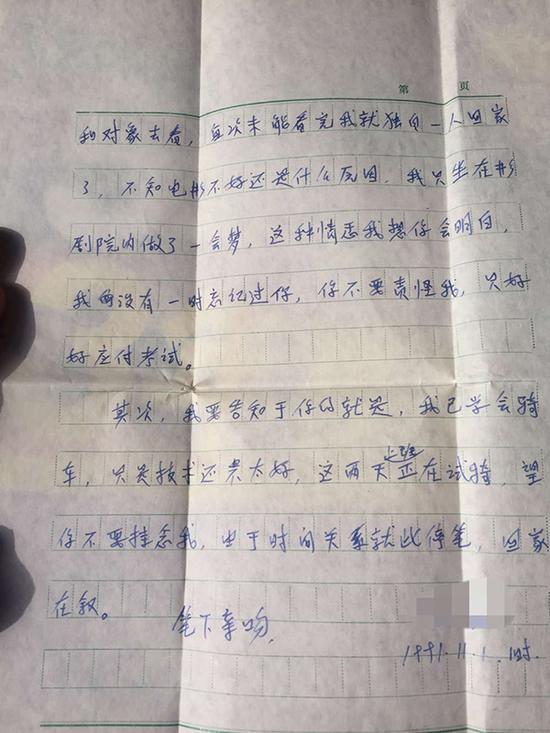 第 頁
和对象去看，每次未能看完我就独自一人回家
了，不知电影不好还是什么原因，我只坐在影
剧院内做了一会梦，这种情意我想你会明白，
我再没有一时忘记过你，你不要责怪我，只好
好应付考试。
其次，我要告知于你的就是，我已学会骑
车，只是技术还未太好，这两天正在试骑，望
你不要挂念我，由于时间关系就此停笔，回家
在叙。
笔下亲吻，
1991.11.1.